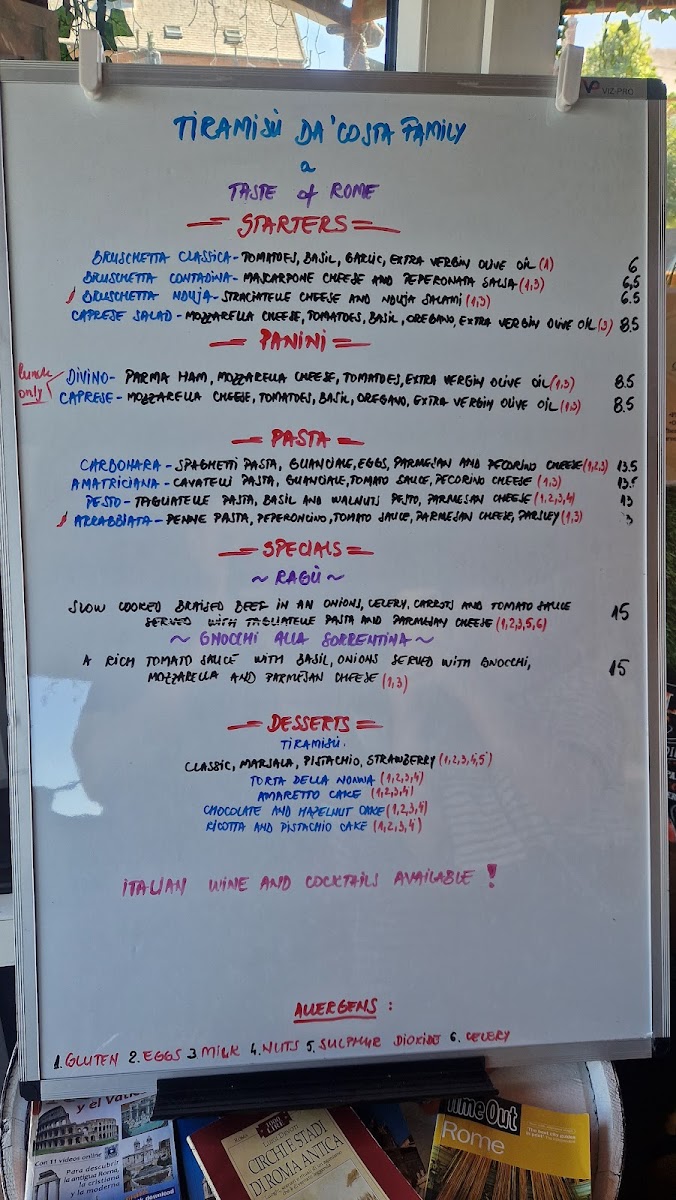 VP VIZ-PRO
TIRAMISÙ DA'COSTA FAMILY
a
TASTE of ROME
STARTERS
BRUSCHETTA CLASSICA - TOMATOES, BASIL, GARLIC, EXTRA VERGIN OLIVE OIL (1) 6
BRUSCHETTA CONTADINA - MASCARPONE CHEESE AND PEPERONATA SALSA (1,3) 6,5
BRUSCHETTA NDUJA - STRACIATELLE CHEESE AND NDUJA SALAMI (1,3) 6.5
CAPRESE SALAD - MOZZARELLA CHEESE, TOMATOES, BASIL, OREGANO, EXTRA VERGIN OLIVE OIL (3) 8.5
PANINI
lunch only
DIVINO - PARMA HAM, MOZZARELLA CHEESE, TOMATOES, EXTRA VERGIN OLIVE OIL (1,3) 8.5
CAPRESE - MOZZARELLA CHEESE, TOMATOES, BASIL, OREGANO, EXTRA VERGIN OLIVE OIL (1,3) 8.5
PASTA
CARBONARA - SPAGHETTI PASTA, GUANCIALE, EGGS, PARMESAN AND PECORINO CHEESE (1,2,3) 13.5
AMATRICIANA - CAVATELLI PASTA, GUANCIALE, TOMATO SAUCE, PECORINO CHEESE (1,3) 13.5
PESTO - TAGLIATELLE PASTA, BASIL AND WALNUTS PESTO, PARMESAN CHEESE (1,2,3,4) 13
ARRABBIATA - PENNE PASTA, PEPERONCINO, TOMATO SAUCE, PARMESAN CHEESE, PARSLEY (1,3)
SPECIALS
~ RAGÙ ~
SLOW COOKED BRAISED BEEF IN AN ONIONS, CELERY, CARROTS AND TOMATO SAUCE
SERVED WITH TAGLIATELLE PASTA AND PARMESAN CHEESE (1,2,3,5,6) 15
~ GNOCCHI ALLA SORRENTINA ~
A RICH TOMATO SAUCE WITH BASIL, ONIONS SERVED WITH GNOCCHI, 15
MOZZARELLA AND PARMESAN CHEESE (1,3)
DESSERTS
TIRAMISÙ:
CLASSIC, MARSALA, PISTACHIO, STRAWBERRY (1,2,3,4,5)
TORTA DELLA NONNA (1,2,3,4)
AMARETTO CAKE (1,2,3,4)
CHOCOLATE AND HAZELNUT CAKE (1,2,3,4)
RICOTTA AND PISTACHIO CAKE (1,2,3,4)
ITALIAN WINE AND COCKTAILS AVAILABLE !
ALLERGENS :
1. GLUTEN 2. EGGS 3 MILK 4. NUTS 5. SULPHUR DIOXIDE 6. CELERY
y el Vatic
Con 11 videos online
Para descubrir
la antigua Roma,
la cristiana
y la moderna
CIRCHI E STADI
DI ROMA ANTICA
Time Out
Rome